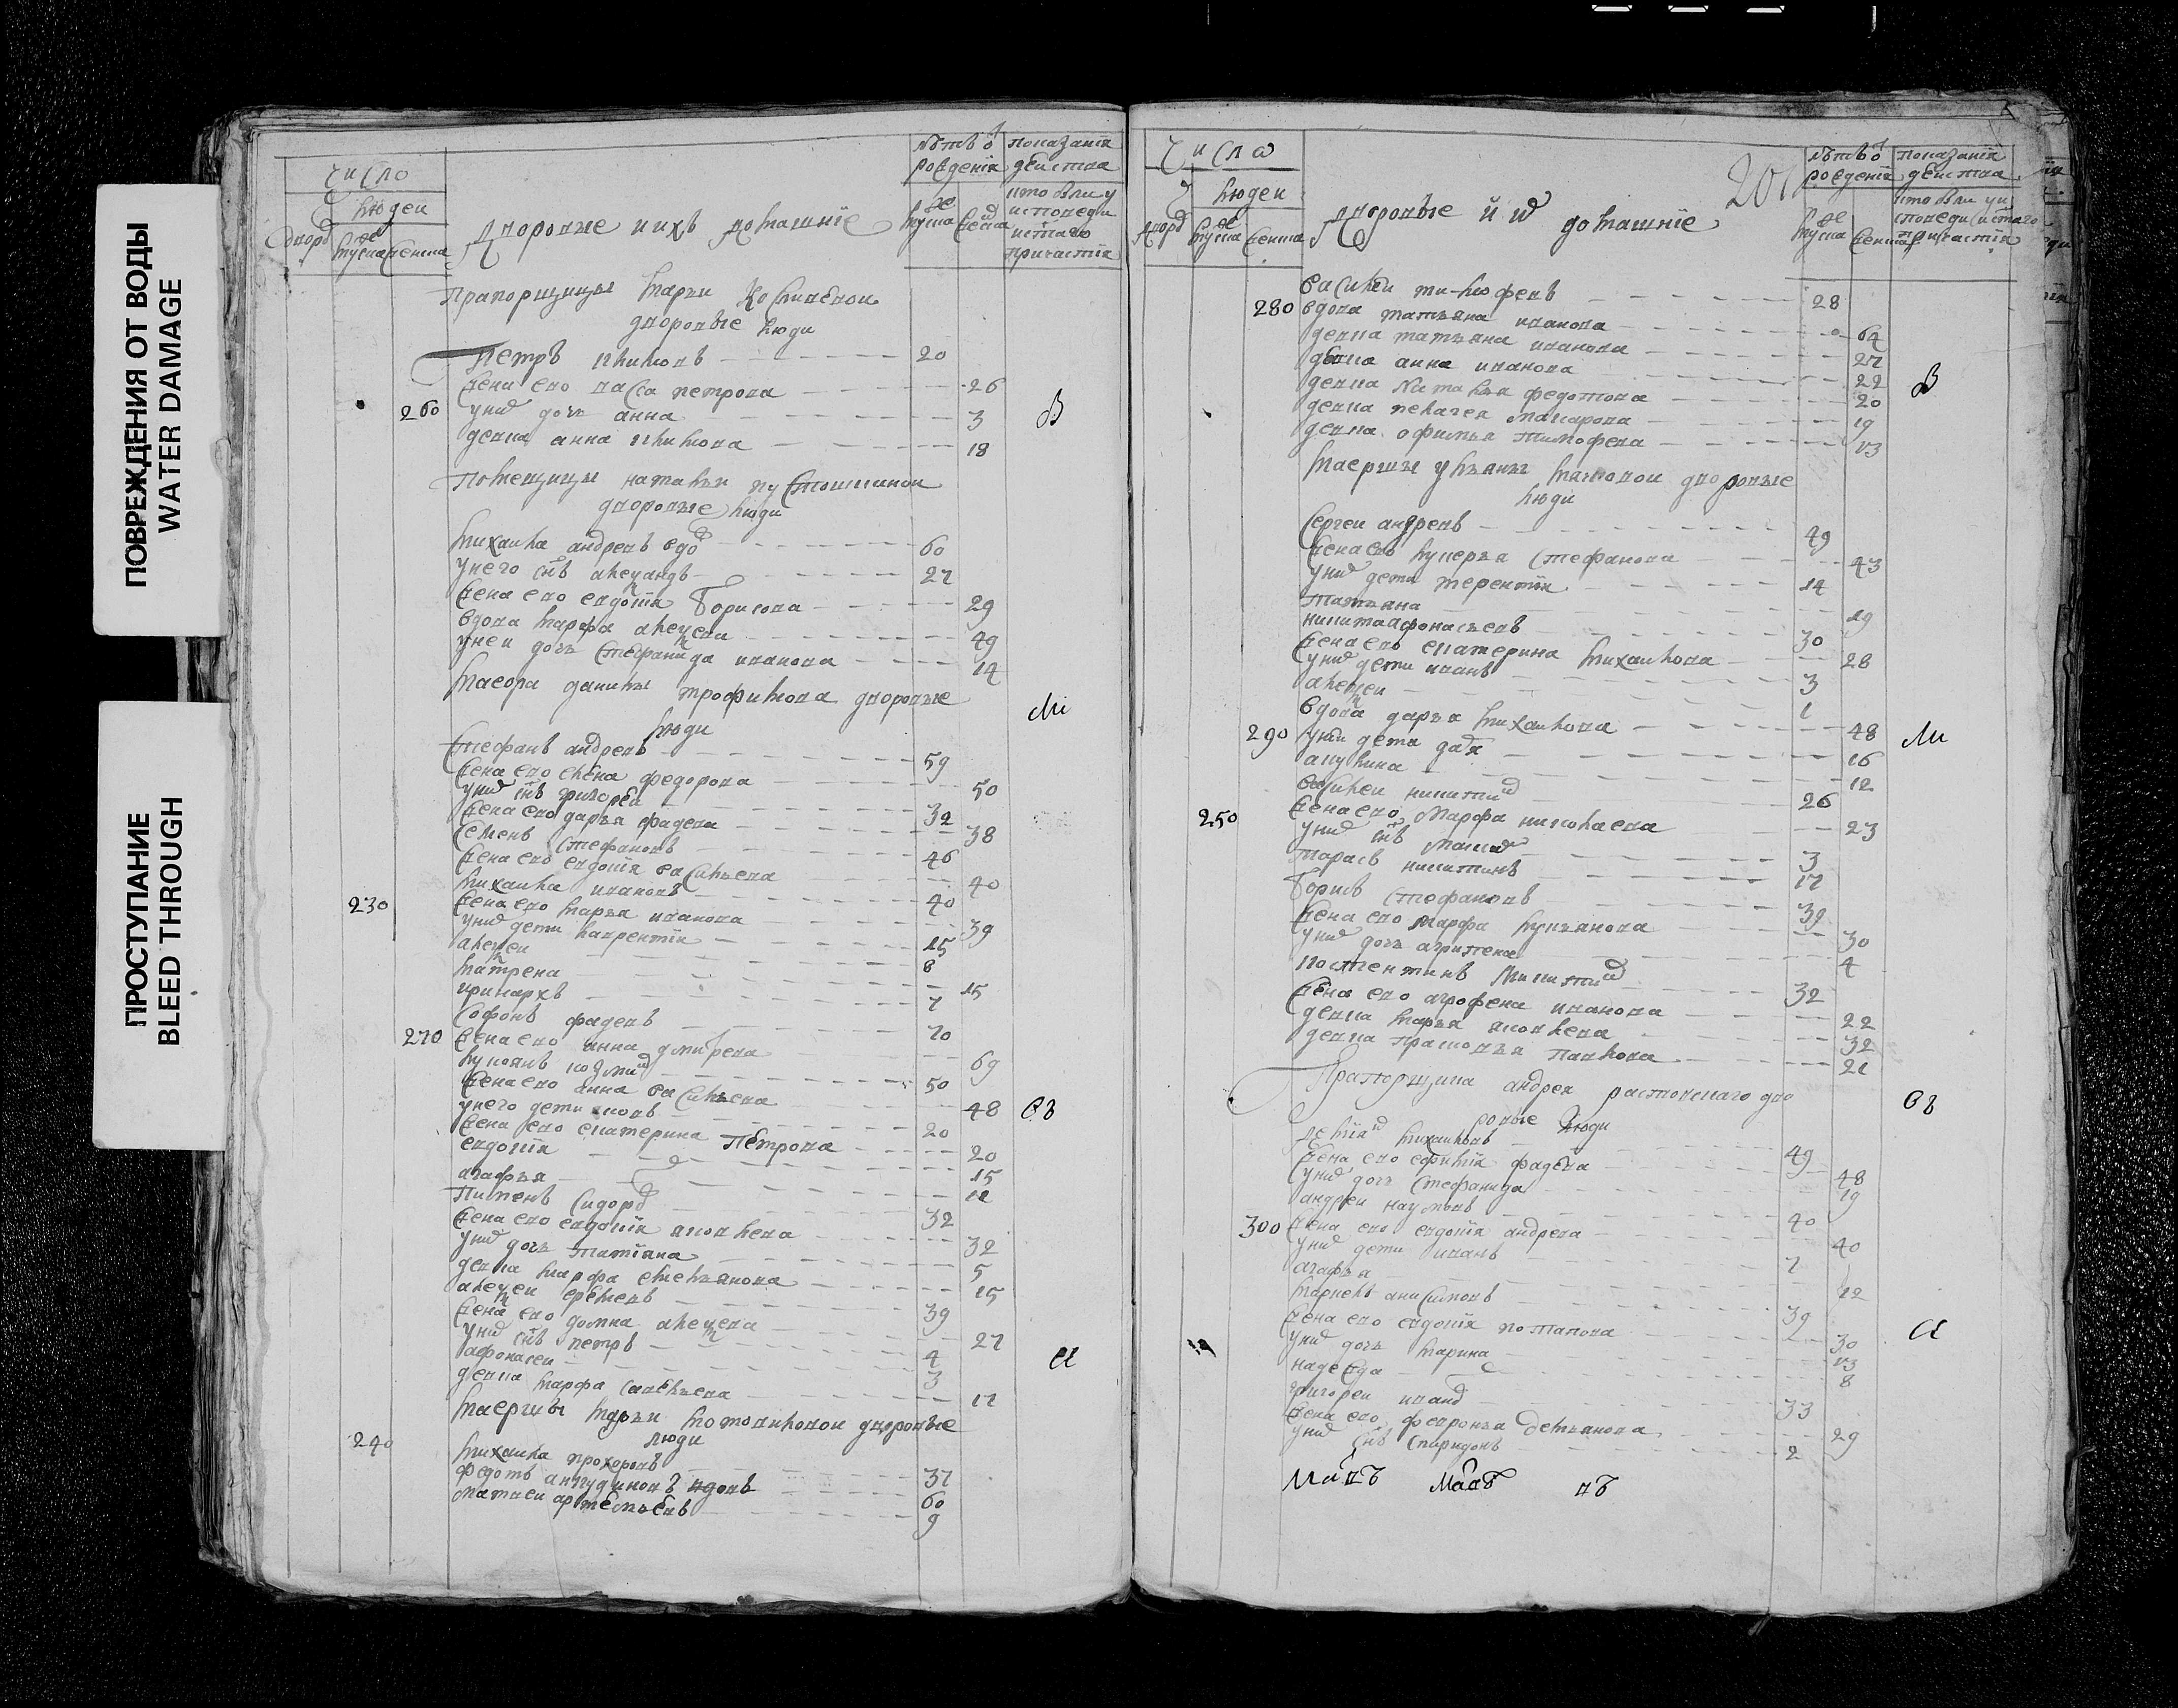 ПОВРЕЖДЕНИЯ ОТ ВОДЫ
WATER DAMAGE
ПРОСТУПАНИЕ
BLEED THROUGH
число
людеи
дворо
мужеска
женска
Дворовые и ихъ домашнїе
лѣтъ ѿ рождения
показания действа
кто были у исповеди и стаго причастїя
Прапорщицы Марьи
дворовые люди
Петръ 20
жена ево васса петрова 26
260 у них дочь анна 3
девка анна 18
Помещицы натальи
дворовые люди
михаила андревъ вдо 60
у него снъ алеѯандръ 27
жена ево евдокїя Борисова 29
вдова марфа алеѯева 49
у неи дочь стефанида иванова 14
маеора данилы трофимова дворовые
люди
стефанъ андревъ 59
жена ево елена федорова 50
у них снъ григореи 32
жена ево дарья фадеева 38
семенъ стефановъ 46
жена ево евдокїя васильева 40
михаила ивановъ 40
230 жена ево марья иванова 39
у них дети лаврентїи 15
алеѯеи 8
матрена 15
иринархъ 7
софонъ фадеевъ 70
270 жена ево анна дмитрева 69
лукоянъ козми 50
жена ево анна васильева 48
у него дети 20
жена ево екатерина Петрова 20
евдокїя 15
агафья 12
Пименъ сидоро 32
жена ево евдокїя яковлева 32
у них дочь татїяна 5
девка марфа емельянова 15
алеѯеи еремеевъ 39
жена ево домна алеѯева 27
у них снъ петръ 4
афонасеи 3
девка марфа савельева 17
маерши марьи дворовые
люди
240 михаила прохоровъ 37
федотъ вдовъ 60
матвеи артемьевъ 9
число
201
людеи
дворо
мужеска
женска
Дворовые и их домашнїе
лѣтъ ѿ рождения
показания действа
кто были у исповеди и стаго причастїя
василеи тимофеевъ 28
280 вдова татьяна иванова 64
девка татьяна иванова 27
девка анна иванова 22
девка наталья федотова 20
девка пелагея макарова 19
девка офимья тимофеева 13
маерши ульяны дворовые
люди
Сергеи андревъ 49
жена ево лукерья стефанова 43
у них дети терентїи 14
татьяна 19
никита афонасьевъ 30
жена ево екатерина михаилова 28
у них дети иванъ 3
алеѯеи 1
вдова дарья михаилова 48
290 у неи дети дарья 16
акулина 12
василеи никити 26
250 жена ево марфа николаева 23
у них снъ 3
тарасъ никитинъ 17
Борисъ стефановъ 39
жена ево марфа лукьянова 30
у них дочь агрипена 4
костентинъ никити 32
жена ево агрофена иванова 22
девка марья яковлева 32
девка прасковья павлова 21
Прапорщика андрея дво
ровые люди
михаиловъ 49
жена ево фадеева 48
у них дочь стефанида 19
андреи наумовъ 40
300 жена ево евдокїя андреева 40
у них дети иванъ 7
агафья 12
маркелъ анисимовъ 39
жена ево евдокїя потапова 30
у них дочь марина 13
надежда 8
григореи ивано 33
жена ево февронья демьянова 29
у них снъ спиридонъ 2